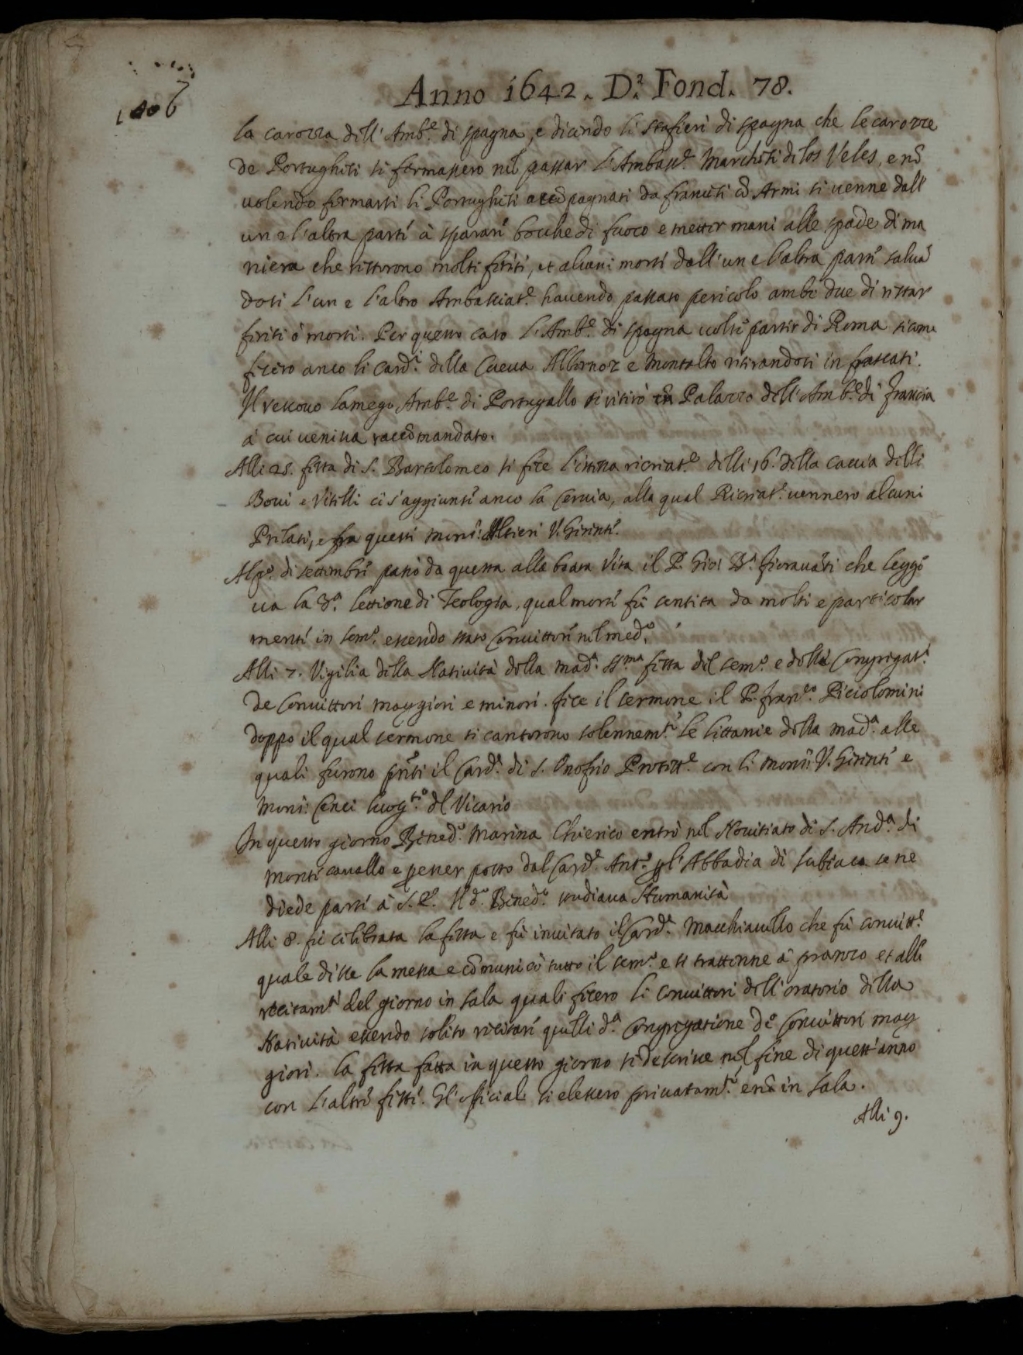 Anno 1642. D.ª Fond. 78.
la carozza dell' Amb.e di spagna, e dicendo li stafieri di spagna che le carozze
de Portughesi si fermassero nel passar l'Ambas.e Marchese di los Veles, e nō
volendo fermarsi li Portughesi accōpagnati da francesi cō Armi si venne dall'
un e l'altra parte à sparare bocche di fuoco e metter mani alle spade di ma
niera che restorono molti feriti, et alcuni morti dall'un e l'altra parte salvā
dosi l'un e l'altro Ambasciat.e havendo passato pericolo ambe due di restar
feriti ò morti. Per questo caso l'Amb.e di spagna volse partir di Roma si come
fecero anco li Card.i della Cueva Albornoz e Montalto ritirandosi in frascati.
Il vescovo Lamego Amb.e di Portugallo si ritirò Palazzo dell'Amb.e di francia
à cui veniva raccōmandato.
Alli 25. festa di S. Bartolomeo si fece l'istessa ricreat.e delli 16. della caccia delli
Bovi e Vitelli ci s'aggiunse anco la Cervia, alla qual Ricreat.e vennero alcuni
Prelati, e fra questi mons.r Altieri V.Gerente.
Al p.o di settembre passò da questa alla beata Vita il P. Gio: B.a fioravāti che leggē
va la 3.a lettione di Teologia, qual morte fù sentita da molti e particolar
mente in sem.o essendo stato Convittore nel med.o
Alli 7. Vigilia della Natività della mad.a SS.ma festa del sem.o e della Congregat.e
de Convittori maggiori e minori. fece il sermone il P. fran.co Piccolomini
doppo il qual sermone si cantorono solennem.e le littanie della mad.a alle
quali furono pñti il Card.e di S. Onofrio Protett.e con li mons.ri V.Gerente e
mons.r Cenci luogt.e del Vicario
In questo giorno Bened.o Marina Chierico entrò nel Novitiato di S. And.a di
monte cavallo e per esser posto dal Card.e Ant.o all'Abbadia di Subiaco se ne
diede parte à S. E. Il d.o Bened.o studiava Humanità
Alli 8. fù celebrata la festa e fù invitato il Card.e Macchiavello che fù convitt.e
quale disse la messa e cōmunicò tutto il sem.o e si trattenne à pranzo et alli
recitam.ti del giorno in sala quali fecero li Convittori dell'oratorio della
Natività essendo solito recitare quelli d.a Congregatione de Convittori mag
giori. la festa fatta in questo giorno si descrive nel fine di quest'anno
con l'altre feste. Gl'officiali si elessero privatam.te e nō in sala.
Alli 9.